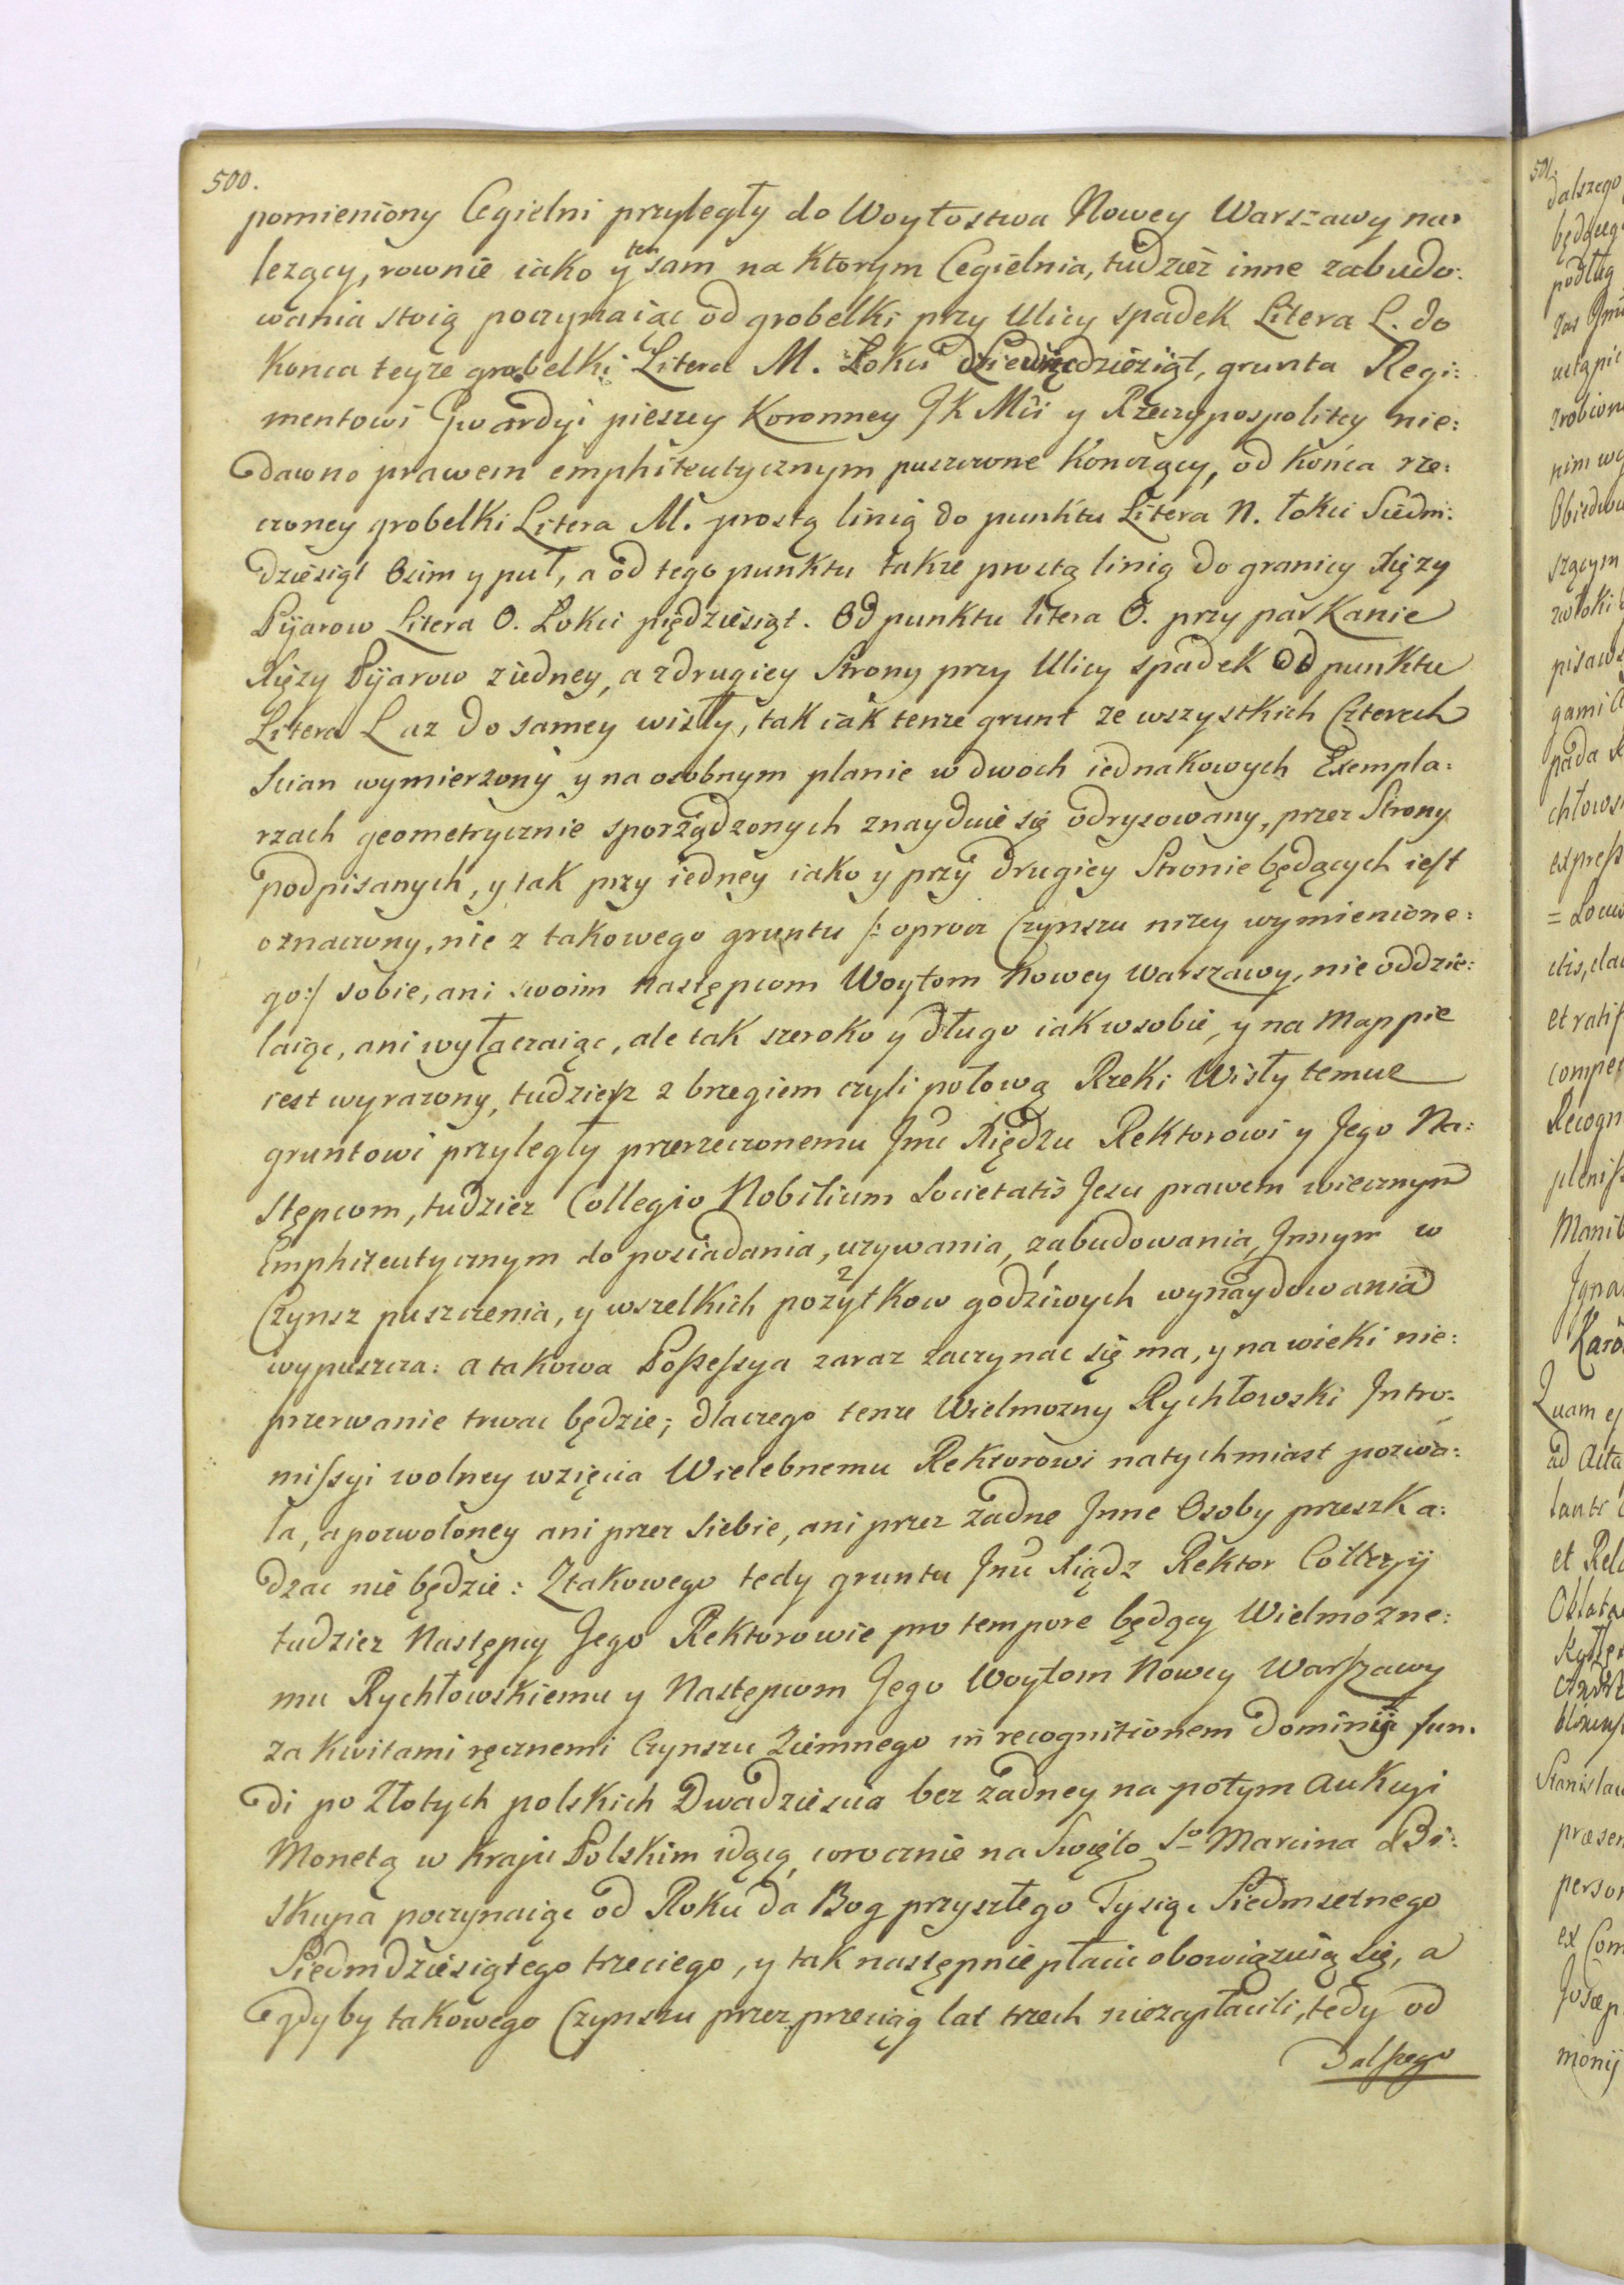 500.
pomieniony Cegielni przyległy do Woytostwa Nowey Warszawy na:
lezący, rownie iako y ten sam na ktorym Cegielnia, tudzież inne zabudo:
wania stoią poczynaiąc od grobelki przy Ulicy spadek Litera L. do
Konca teyze grobelki Litera M. Łokci dziewięcdziesiąt, grunta Regi:
mentowi Gwardyi pieszey Koronney JK Mci y Rzeczypospolitey nie:
dawno prawem emphiteutycznym puszczone konczący, od końca rze:
czoney grobelki Litera M. prostą linią do punktu Litera N. łokci Siedm:
dziesiąt Osim y puł, a od tego punktu takze prostą linią do granicy Xięzy
Pijarow Litera O. Łokci piędziesiąt. Od punktu litera O. przy parkanie
Xięzy Pijarow ziedney, a zdrugiey Strony przy Ulicy spadek Od punktu
Litera L az do samey wisły, tak iak tenze grunt ze wszystkich Czterech
Scian wymierzony y na osobnym planie w dwoch iednakowych Exempla:
rzach geometrycznie sporządzonych znayduie się odrysowany, przez Strony
podpisanych, y tak przy iedney iako y przy drugiey Stronie będących iest
oznaczony, nic z takowego gruntu /: oprocz Czynszu nizey wymienione:
go:/ sobie, ani swoim następcom Woytom Nowey Warszawy, nie oddzie:
laiąc, ani wyłączaiąc, ale tak szeroko y długo iak wsobie, y na Mappie
iest wyrazony, tudziesz z brzegiem czyli połową Rzeki Wisły temuz
gruntowi przyległy przerzeczonemu Jmci Xiędzu Rektorowi y Jego Na:
stępcom, tudziez Collegio Nobilium Societatis Jesu prawem wiecznym
Emphiteutycznym do posiadania, uzywania, zabudowania, Jnnym w
Czynsz puszczenia, y wszelkich pożytkow godziwych wynaydowania
wypuszcza: a takowa Possessya zaraz zaczynac się ma, y na wieki nie:
przerwanie trwac będzie; dlaczego tenze Wielmozny Rychłowski Jntro:
missyi wolney wzięcia Wielebnemu Rektorowi natychmiast pozwa:
la, a pozwoloney ani przez siebie, ani przez żadne Jnne Osoby przeszka:
dzac nie będzie: Ztakowego tedy gruntu Jmci Xiądz Rektor Collegij
tudziez Następcy Jego Rektorowie pro tempore będący Wielmozne:
mu Rychłowskiemu y Następcom Jego Woytom Nowey Warszawy
za kwitami ręcznemi Czynszu Ziemnego in recognitionem dominij fun:
di po Złotych polskich Dwadziescia bez żadney na potym aukcyi
Monetą w kraju Polskim idącą, corocznie na Swięto So Marcina Bi:
skupa poczynaiąc od Roku da Bog przyszłego Tysiąc Siedmsetnego
Siedmdziesiątego trzeciego, y tak następnie płacic obowiązuią się, a
gdyby takowego Czynszu przez przeciąg lat trzech niezapłacili, tedy od
Dalszego
501.
dalszego
będącego
podług
ustąpic
pisaws
gami
pada
chłows
express
et ratif
compet
Recogn
pleniss
Manib
Quam
ad Acta
et Rel
Oblata
Stanislau
præsen
person
ex Com
Josep
monij